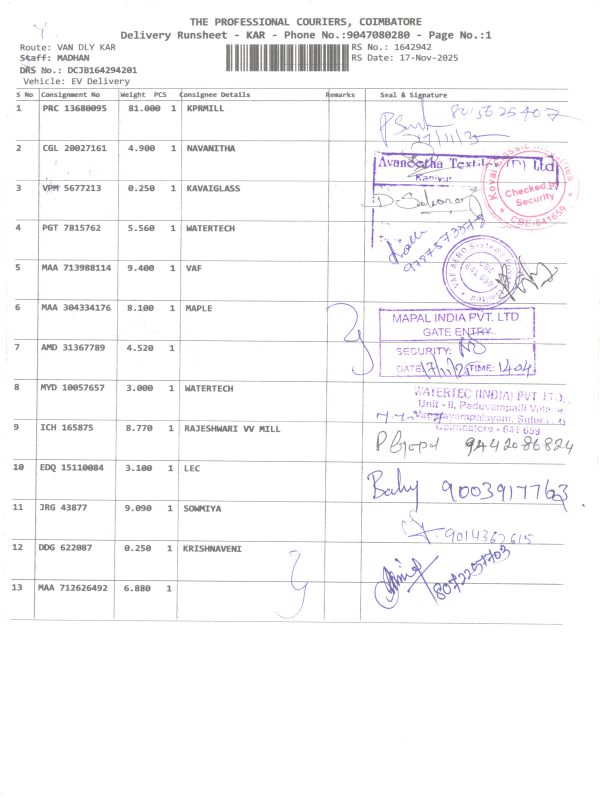 THE PROFESSIONAL COURIERS, COIMBATORE
Delivery Runsheet - KAR - Phone No.:9047080280 - Page No.:1
Route: VAN DLY KAR
RS No.: 1642942
Staff: MADHAN
RS Date: 17-Nov-2025
DRS No.: DCJB164294201
Vehicle: EV Delivery
S No Consignment No Weight PCS Consignee Details Remarks Seal & Signature
1 PRC 13680095 81.000 1 KPRMILL
17/11/25
2 CGL 20027161 4.900 1 NAVANITHA
Avaneetha Textiles (P) Ltd
Kaniyur
Checked By
Security
CBE-641659
3 VPM 5677213 0.250 1 KAVAIGLASS
4 PGT 7815762 5.560 1 WATERTECH
5 MAA 713988114 9.400 1 VAF
6 MAA 304334176 8.100 1 MAPLE
MAPAL INDIA PVT. LTD
GATE ENTRY
7 AMD 31367789 4.520 1
SECURITY:
DATE 17/11/25 TIME: 1404
8 MYD 10057657 3.000 1 WATERTECH
WATERTEC (INDIA) PVT LTD.
Unit - II, Paduvampalli
Coimbatore - 641 659
9 ICH 165875 8.770 1 RAJESHWARI VV MILL
P Gopal 9442086824
10 EDQ 15110084 3.100 1 LEC
9003917763
11 JRG 43877 9.090 1 SOWMIYA
9014367615
12 DDG 622087 0.250 1 KRISHNAVENI
8072257703
13 MAA 712626492 6.880 1